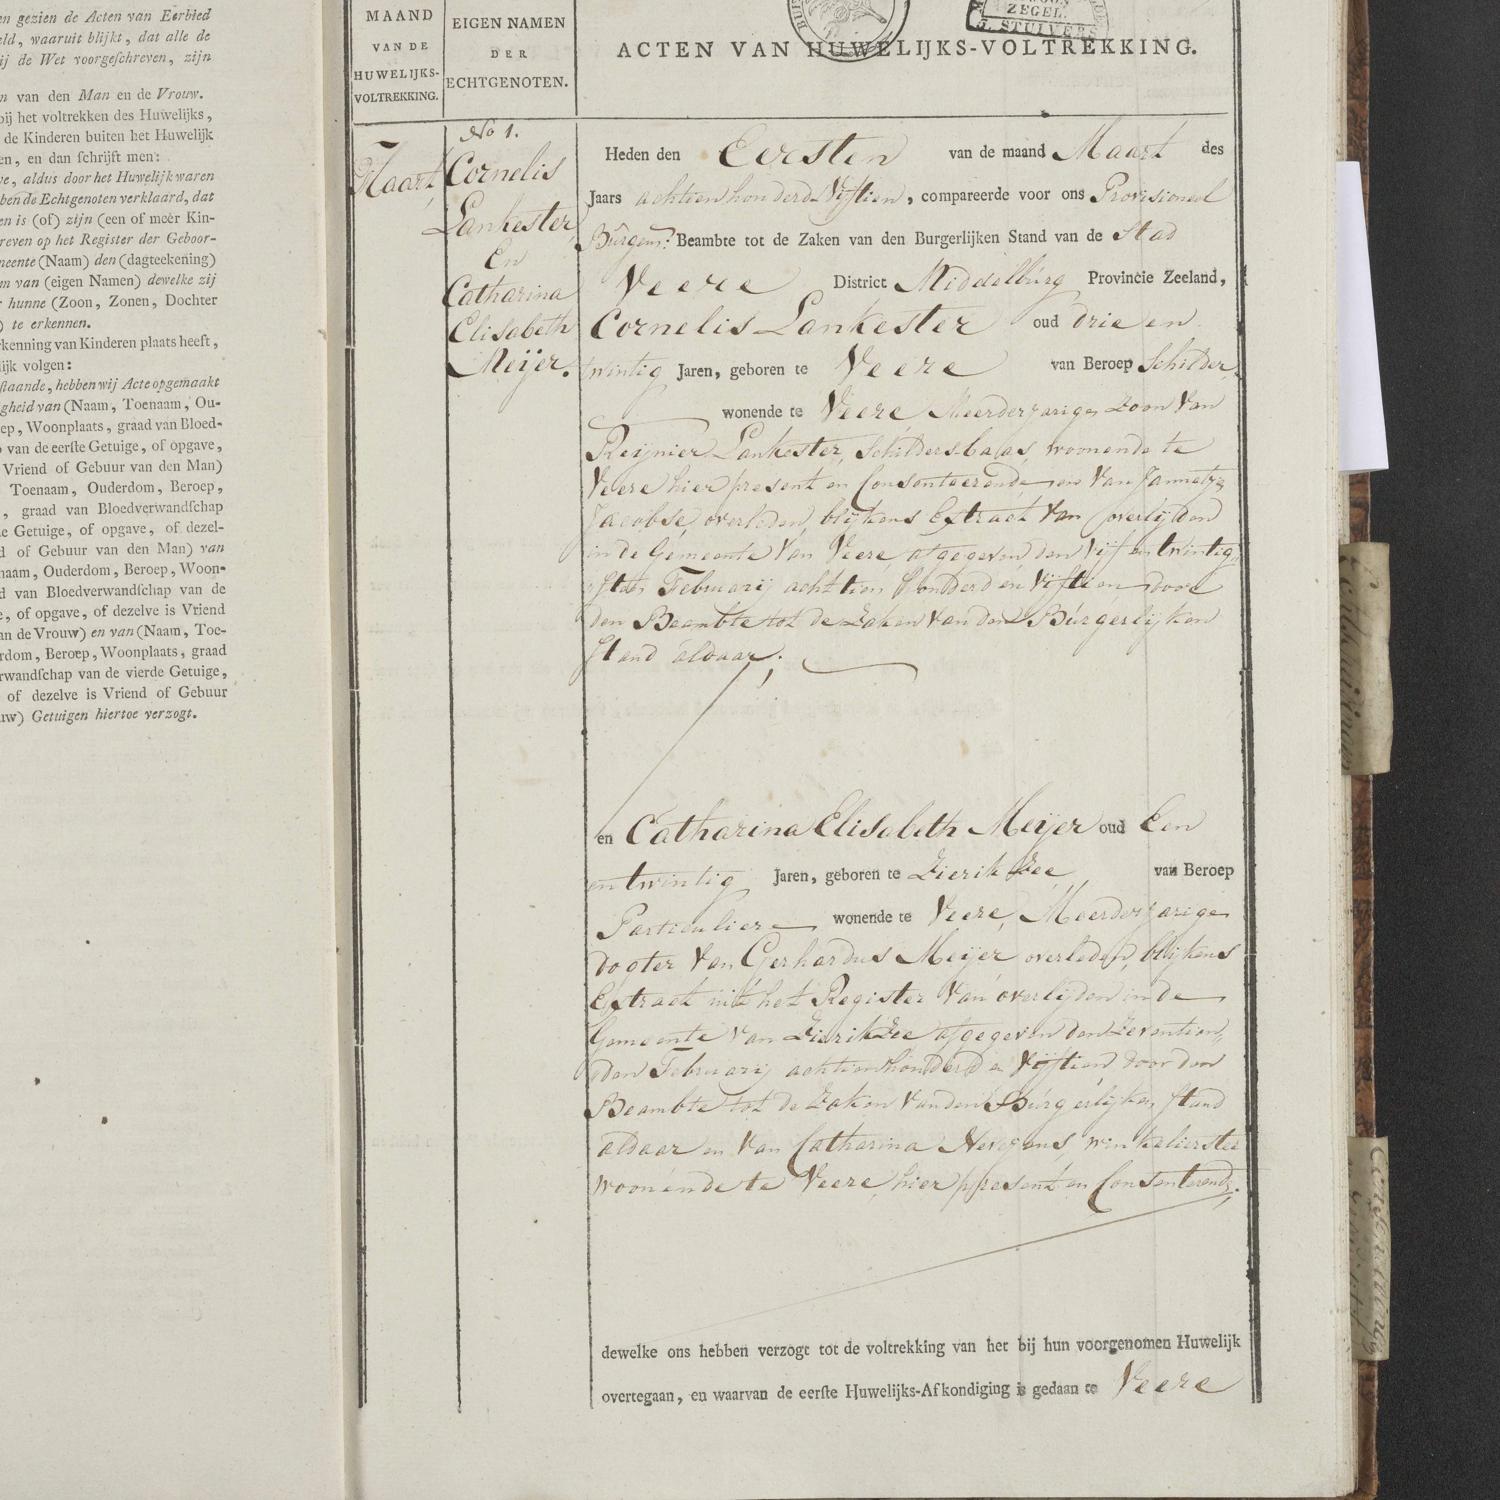 en gezien de Acten van Eerbied
eld, waaruit blijkt, dat alle de
ij de Wet voorgeſchreven, zijn
n van den Man en de Vrouw.
bij het voltrekken des Huwelijks,
de Kinderen buiten het Huwelijk
en, en dan ſchrijft men:
ve, aldus door het Huwelijk waren
ben de Echtgenoten verklaard, dat
en is (of) zijn (een of meer Kin-
reven op het Register der Geboor-
neente (Naam) den (dagteekening)
m van (eigen Namen) dewelke zij
r hunne (Zoon, Zonen, Dochter
) te erkennen.
rkenning van Kinderen plaats heeft,
lijk volgen:
ſtaande, hebben wij Acte opgemaakt
gheid van (Naam, Toenaam, Ou-
ep, Woonplaats, graad van Bloed-
van de eerſte Getuige, of opgave,
Vriend of Gebuur van den Man)
Toenaam, Ouderdom, Beroep,
, graad van Bloedverwandſchap
e Getuige, of opgave, of dezel-
d of Gebuur van den Man) van
naam, Ouderdom, Beroep, Woon-
d van Bloedverwandſchap van de
e, of opgave, of dezelve is Vriend
an de Vrouw) en van (Naam, Toe-
rdom, Beroep, Woonplaats, graad
rwandſchap van de vierde Getuige,
of dezelve is Vriend of Gebuur
uw) Getuigen hiertoe verzogt.
MAAND
VAN DE
HUWELIJKS-
VOLTREKKING.
EIGEN NAMEN
DER
ECHTGENOTEN.
ZEGEL.
STUIVERS
ACTEN VAN HUWELIJKS-VOLTREKKING.
Maart
No 1.
Cornelis
Lankester
En
Catharina
Elisabeth
Meijer.
Heden den Eersten van de maand Maart des
Jaars achtienhonderd Vijftien, compareerde voor ons Provisioneel
Burgem: Beambte tot de Zaken van den Burgerlijken Stand van de Stad
Veere District Middelburg Provincie Zeeland,
Cornelis Lankester oud drie en
twintig Jaren, geboren te Veere van Beroep Schilder
wonende te Veere, Meerderjarige Zoon Van
Reijnier Lankester, Schildersbaas, woonende te
Veere hier present en Consenteerende en Van Jannetje
Jacobse overleden, blijkens Extract Van overlijden
in de Gemeente Van Veere afgegeven den Vijf en twintig
sten Februarij achttien honderd en Vijftien door
den Beambte tot de Zaken Van den Burgerlijken
Stand aldaar;
en Catharina Elisabeth Meijer oud Een
en twintig Jaren, geboren te Zierikzee van Beroep
Particuliere wonende te Veere, Meerderjarige
dogter Van Gerhardus Meijer overleden, blijkens
Extract uit het Register Van overlijden in de
Gemeente Van Zierikzee afgegeven den Zeventien
den Februarij achtienhonderd en Vijftien door den
Beambte tot de Zaken Van den Burgerlijken Stand
aldaar en Van Catharina winkelierster
woonende te Veere, hier present en Consenterende.
dewelke ons hebben verzogt tot de voltrekking van het bij hun voorgenomen Huwelijk
overtegaan, en waarvan de eerſte Huwelijks-Afkondiging is gedaan te Veere